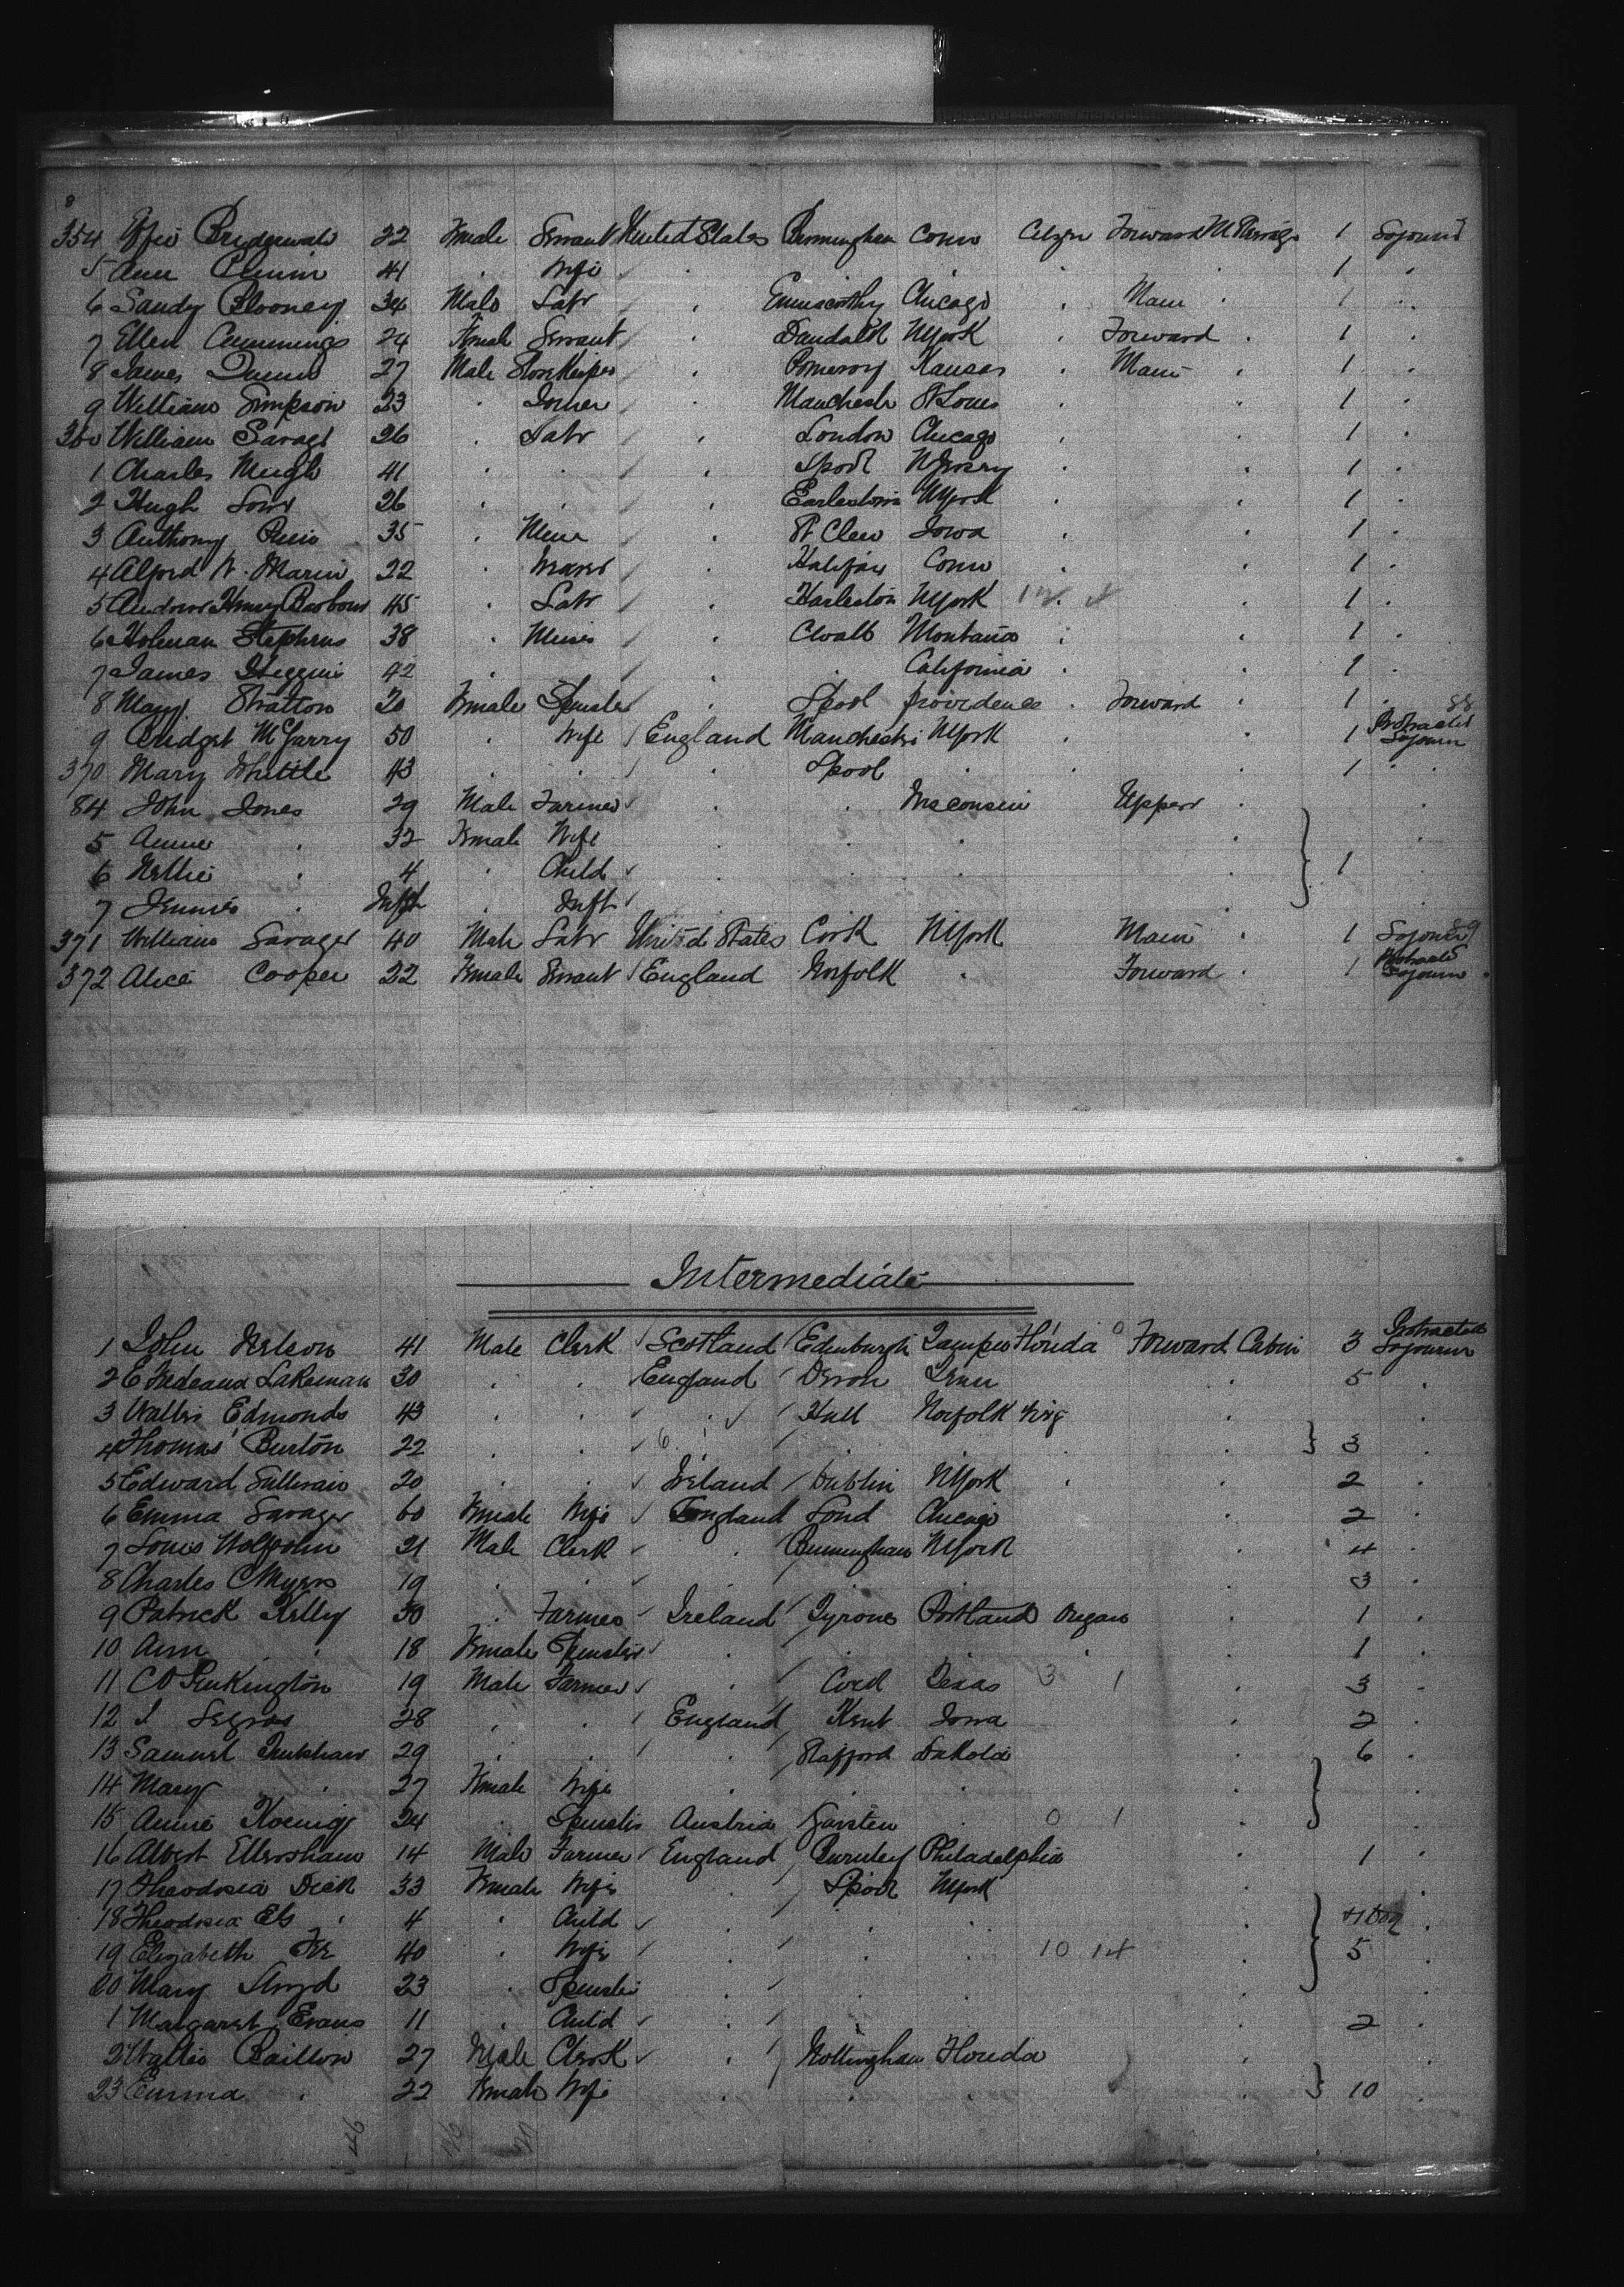 354 Effie Bridgewate 22 Female Servant United States Birmingham Conn Citizn Forward M Passage 1 Sojourn
5 Ann 41 . Wife . . . . 1 .
6 Sandy Clooney 34 Male Labr . Chicago . Main . 1 .
7 Ellen Cummings 24 Female Servant . Dundalk NYork . Forward . 1 .
8 James Quinn 27 Male StoreKeeper . Pomeroy Kansas . Main . 1 .
9 William Simpson 23 . Joiner . Manchestr St Louis . . 1 .
360 William Savage 26 . Labr . London Chicago . . 1 .
1 Charles 41 . . . Lpool NJersey . . 1 .
2 Hugh 26 . . . Earlestown NYork . . 1 .
3 Anthony 35 . Miner . Iowa . . 1 .
4 Alfred W. Marin 22 . Weaver . Halifax Conn . . 1 .
5 Andrew Henry Barbour 45 . Labr . Harleston NYork . . 1 .
6 Holman Stephens 38 . Miner . Montana . . 1 .
7 James Higgins 42 . . . . California . . 1 .
8 Mary Stratton 20 Female Spinster . Lpool Providence . Forward . 1 .
9 Bridget McGarry 50 . Wife England Manchester NYork . . 1 Protracted Sojourn
370 Mary Whittle 43 . . . Lpool . . . 1 .
84 John Jones 29 Male Farmer . . Wisconsin Upper . .
5 Annie . 32 Female Wife . . . . .
6 Nellie . 4 . Child . . . . 1 .
7 Jennie . Inft . Inft . .
371 William Savage 40 Male Labr United States Cork NYork Main . 1 Sojourn
372 Alice Cooper 22 Female Servant England Norfolk . Forward . 1 Protracted Sojourn
Intermediate
1 John Nelson 41 Male Clerk Scotland Edinburgh Tampa Florida Forward Cabin 3 Protracted Sojourn
2 E Lakeman 30 . . England Devon . 5 .
3 Walter Edmonds 43 . . . Hull Norfolk Virg . .
4 Thomas Burton 22 . . . . . . 3 .
5 Edward Sullivan 20 . . Ireland Dublin NYork . . 2 .
6 Emma Savage 60 Female Wife England Lond Chicago . 2 .
7 Louis 21 Male Clerk . Birmingham NYork . 4 .
8 Charles C Myers 19 . . . . . . 3 .
9 Patrick Kelly 30 . Farmer Ireland Tyrone Portland Oregon . 1 .
10 Ann . 18 Female Spinster . . . . . 1 .
11 C D Pinkington 19 Male Farmer . Texas 3 1 . 3 .
12 J Legros 28 . . England Kent Iowa . 2 .
13 Samuel 29 . . . Stafford Dakota . 6 .
14 Mary . 27 Female Wife . . . . .
15 Annie Koenig 24 . Spinster Austria . 0 1 . .
16 Albert Ellersham 14 Male Farmer England Burnley Philadelphia . 1 .
17 Theodosia Dick 33 Female Wife . Lpool NYork . .
18 Theodosia Els . 4 . Child . . . . .
19 Elizabeth 40 . Wife . . . 10 14 . 5 .
20 Mary Lloyd 23 . Spinster . . . . .
1 Margaret Evans 11 . Child . . . . 2 .
2 Walter Baillon 27 Male Clerk . Nottingham Florida . .
23 Emma . 22 Female Wife . . . . 10 .